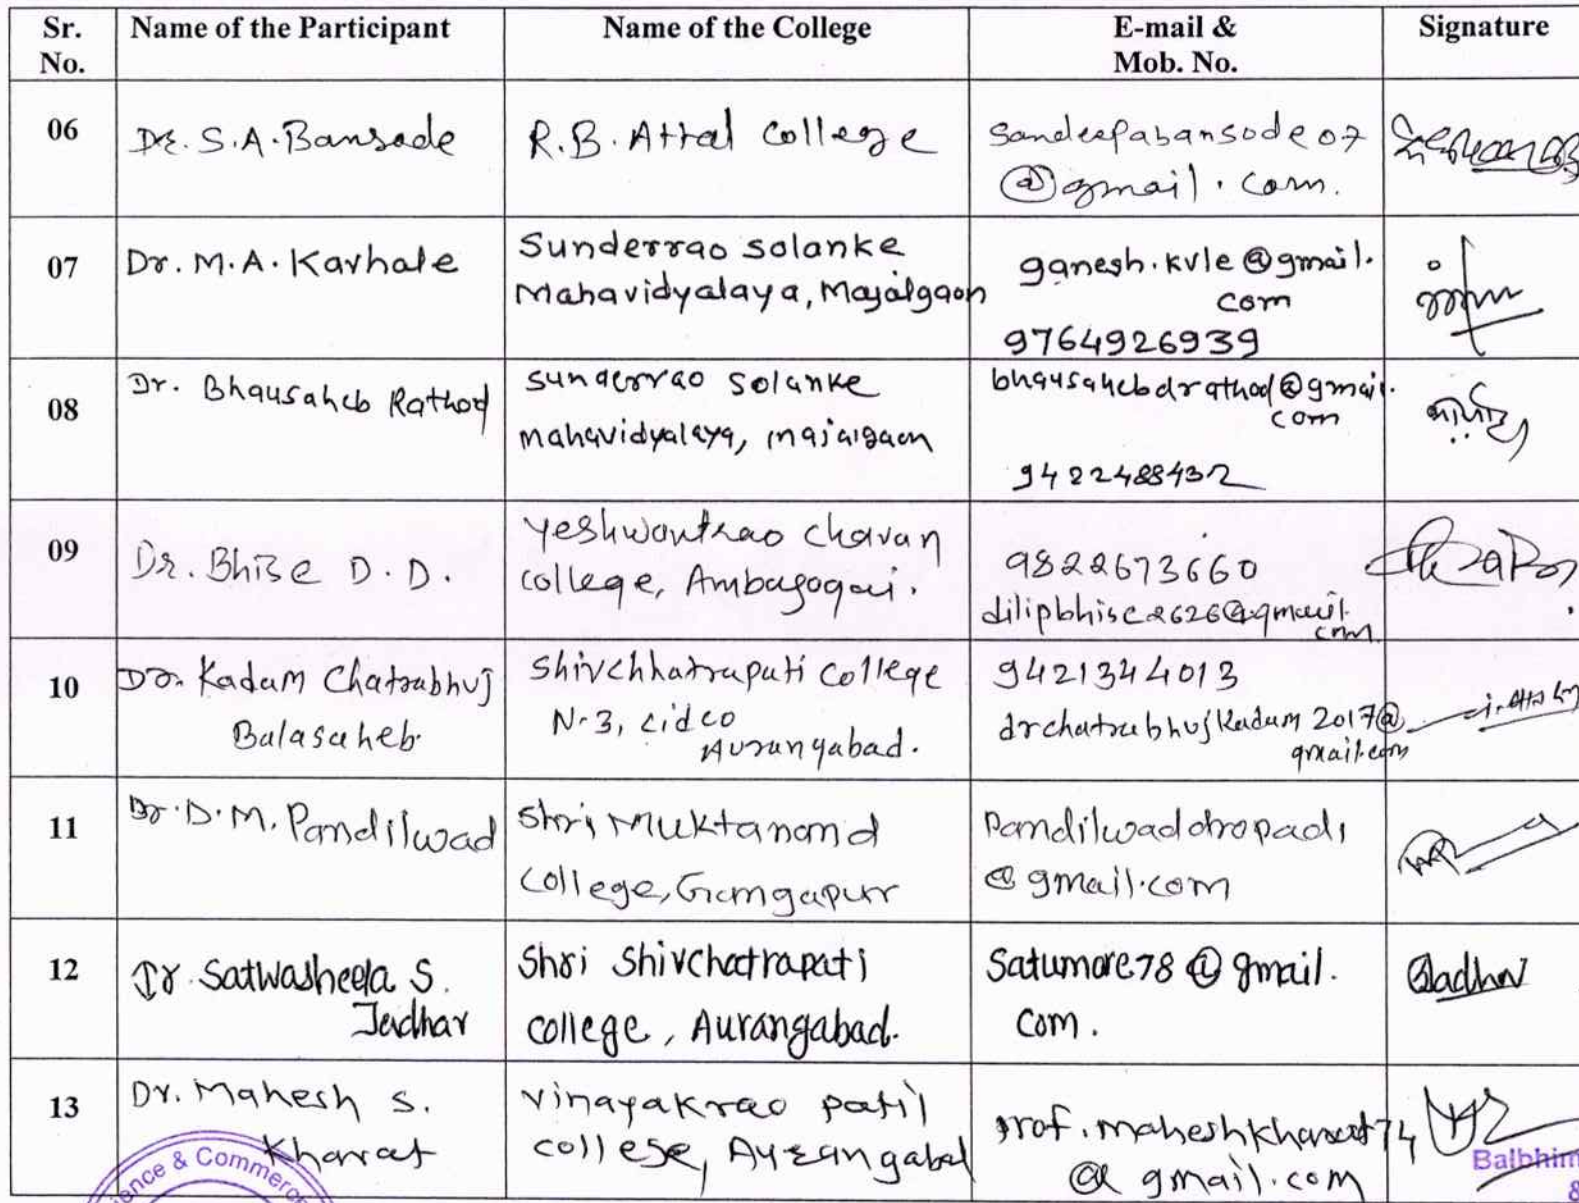 Sr. No. Name of the Participant Name of the College E-mail & Mob. No. Signature
06 Dr. S.A. Bansode R.B. Attal College sandeepabansode07
@gmail.com.
07 Dr. M.A. Kavhale Sunderrao solanke
Mahavidyalaya, Majalgaon
ganesh.kvle@gmail.
com
9764926939
08 Dr. Bhausaheb Rathod sunderrao solanke
mahavidyalaya, majalgaon
bhausahebdrathod@gmail.
com
9422488432
09 Dr. Bhise D.D. Yeshwantrao Chavan
college, Ambajogai.
9822673660
dilipbhise2626@gmail.
com
10 Dr. Kadam Chatrabhuj
Balasaheb.
Shivchhatrapati College
N-3, cidco
Aurangabad.
9421344013
drchatrabhujkadam2017@
gmail.com
11 Dr. D.M. Pandilwad Shri Muktanand
College, Gangapur
Pandilwaddropadi
@gmail.com
12 Dr. Satwasheela S.
Jadhav
Shri Shivchatrapati
college, Aurangabad.
Satumore78@gmail.
com.
Jadhav
13 Dr. Mahesh S.
Kharat
Vinayakrao patil
college, Aurangabad
prof.maheshkharat74
@gmail.com
ence & Commerce
Balbhim
&